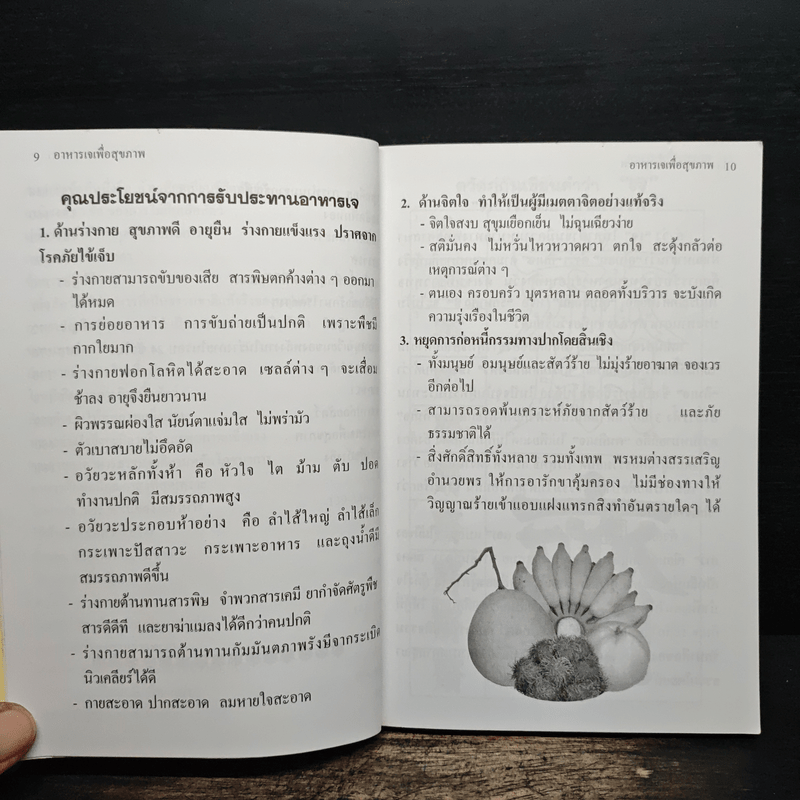 9 อาหารเจเพื่อสุขภาพ
คุณประโยชน์จากการรับประทานอาหารเจ
1. ด้านร่างกาย สุขภาพดี อายุยืน ร่างกายแข็งแรง ปราศจาก
โรคภัยไข้เจ็บ
- ร่างกายสามารถขับของเสีย สารพิษตกค้างต่าง ๆ ออกมา
ได้หมด
- การย่อยอาหาร การขับถ่ายเป็นปกติ เพราะพืชมี
กากใยมาก
- ร่างกายฟอกโลหิตได้สะอาด เซลล์ต่าง ๆ จะเสื่อม
ช้าลง อายุจึงยืนยาวนาน
- ผิวพรรณผ่องใส นัยน์ตาแจ่มใส ไม่พร่ามัว
- ตัวเบาสบายไม่อึดอัด
- อวัยวะหลักทั้งห้า คือ หัวใจ ไต ม้าม ตับ ปอด
ทำงานปกติ มีสมรรถภาพสูง
- อวัยวะประกอบห้าอย่าง คือ ลำไส้ใหญ่ ลำไส้เล็ก
กระเพาะปัสสาวะ กระเพาะอาหาร และถุงน้ำดีมี
สมรรถภาพดีขึ้น
- ร่างกายต้านทานสารพิษ จำพวกสารเคมี ยากำจัดศัตรูพืช
สารดีดีที และยาฆ่าแมลงได้ดีกว่าคนปกติ
- ร่างกายสามารถต้านทานกัมมันตภาพรังษีจากระเบิด
นิวเคลียร์ได้ดี
- กายสะอาด ปากสะอาด ลมหายใจสะอาด
อาหารเจเพื่อสุขภาพ 10
2. ด้านจิตใจ ทำให้เป็นผู้มีเมตตาจิตอย่างแท้จริง
- จิตใจสงบ สุขุมเยือกเย็น ไม่ฉุนเฉียวง่าย
- สติมั่นคง ไม่หวั่นไหวหวาดผวา ตกใจ สะดุ้งกลัวต่อ
เหตุการณ์ต่าง ๆ
- ตนเอง ครอบครัว บุตรหลาน ตลอดทั้งบริวาร จะบังเกิด
ความรุ่งเรืองในชีวิต
3. หยุดการก่อหนี้กรรมทางปากโดยสิ้นเชิง
- ทั้งมนุษย์ อมนุษย์และสัตว์ร้าย ไม่มุ่งร้ายอาฆาต จองเวร
อีกต่อไป
- สามารถรอดพ้นเคราะห์ภัยจากสัตว์ร้าย และภัย
ธรรมชาติได้
- สิ่งศักดิ์สิทธิ์ทั้งหลาย รวมทั้งเทพ พรหมต่างสรรเสริญ
อำนวยพร ให้การอารักขาคุ้มครอง ไม่มีช่องทางให้
วิญญาณร้ายเข้าแอบแฝงแทรกสิงทำอันตรายใดๆ ได้